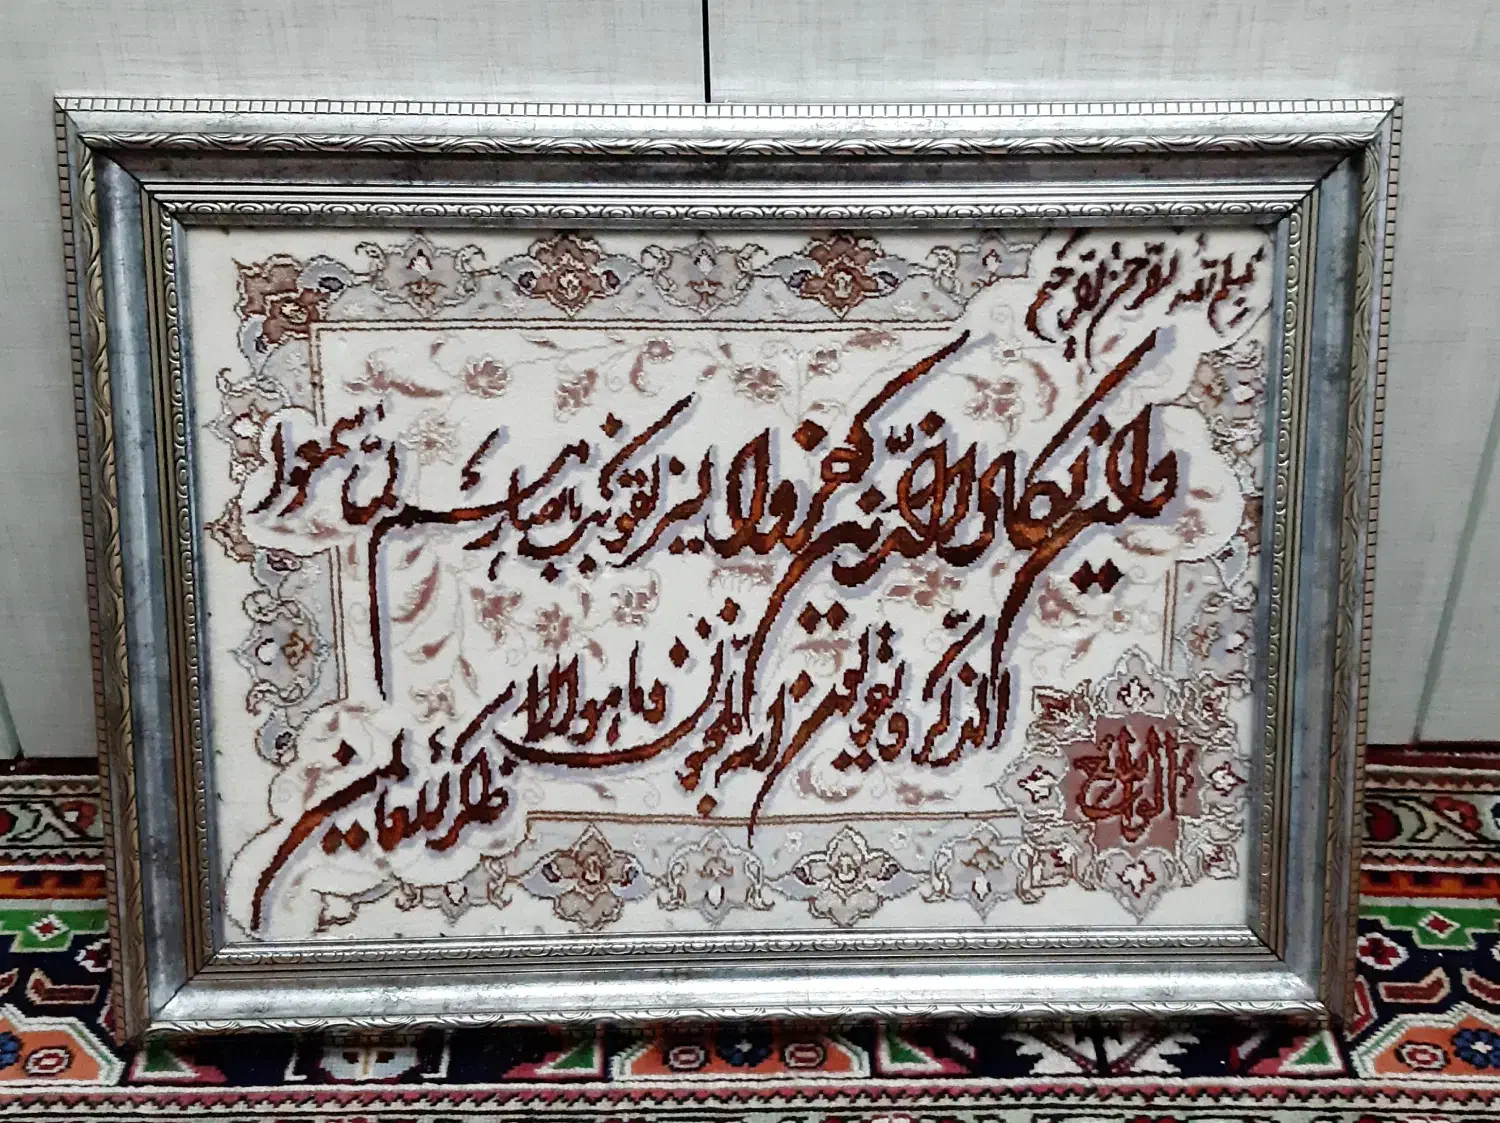 بسم الله الرحمن الرحیم
وان یکاد الذین کفروا لیزلقونک بابصارهم لما سمعوا
الذکر و یقولون انه لمجنون و ما هو الا
ذکر للعالمین